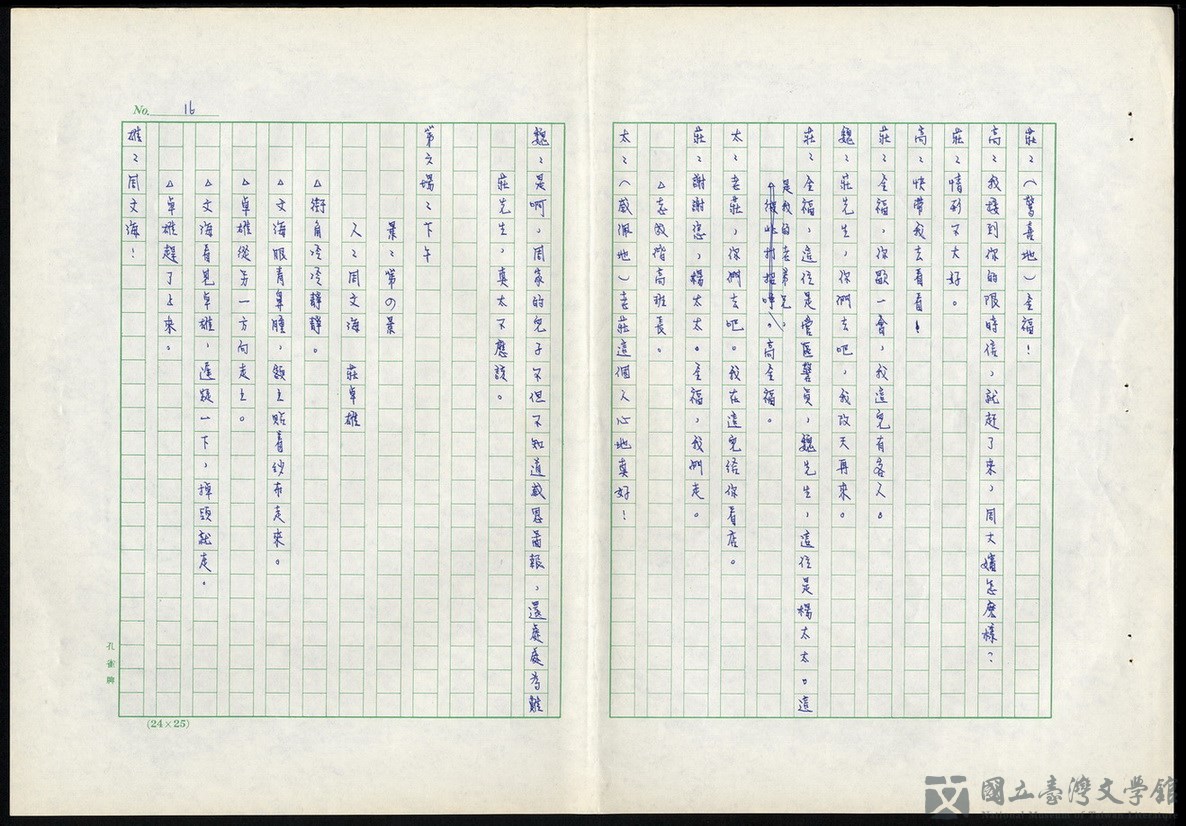 莊:（驚喜地）全福!
高:我接到你的限時信,就趕了來,周大嬸怎麼樣?
莊:情形不大好。
高:快帶我去看看!
莊:全福,你歇一會,我這兒有客人。
魏:莊先生,你們去吧,我改天再來。
莊:全福,這位是管區警員,魏先生,這位是楊太太。這
是我的老弟兄。高全福。
△彼此打招呼。
太:老莊,你們去吧。我在這兒給你看店。
莊:謝謝您,楊太太。全福,我們走。
△志成偕高班長。
太:（感佩地）老莊這個人心地真好!
魏:是啊,周家的兒子不但不知道感恩圖報,還處處為難
莊先生,真太不應該。
第六場:下午
景:第4景
人:周文海 莊卓雄
△街角冷冷靜靜。
△文海眼青鼻腫,額上貼着紗布走來。
△卓雄從另一方向走上。
△文海看見卓雄,遲疑一下,掉頭就走。
△卓雄趕了上來。
雄:周文海!
No. 16
孔雀牌
(24×25)
國立臺灣文學館
National Museum of Taiwan Literature